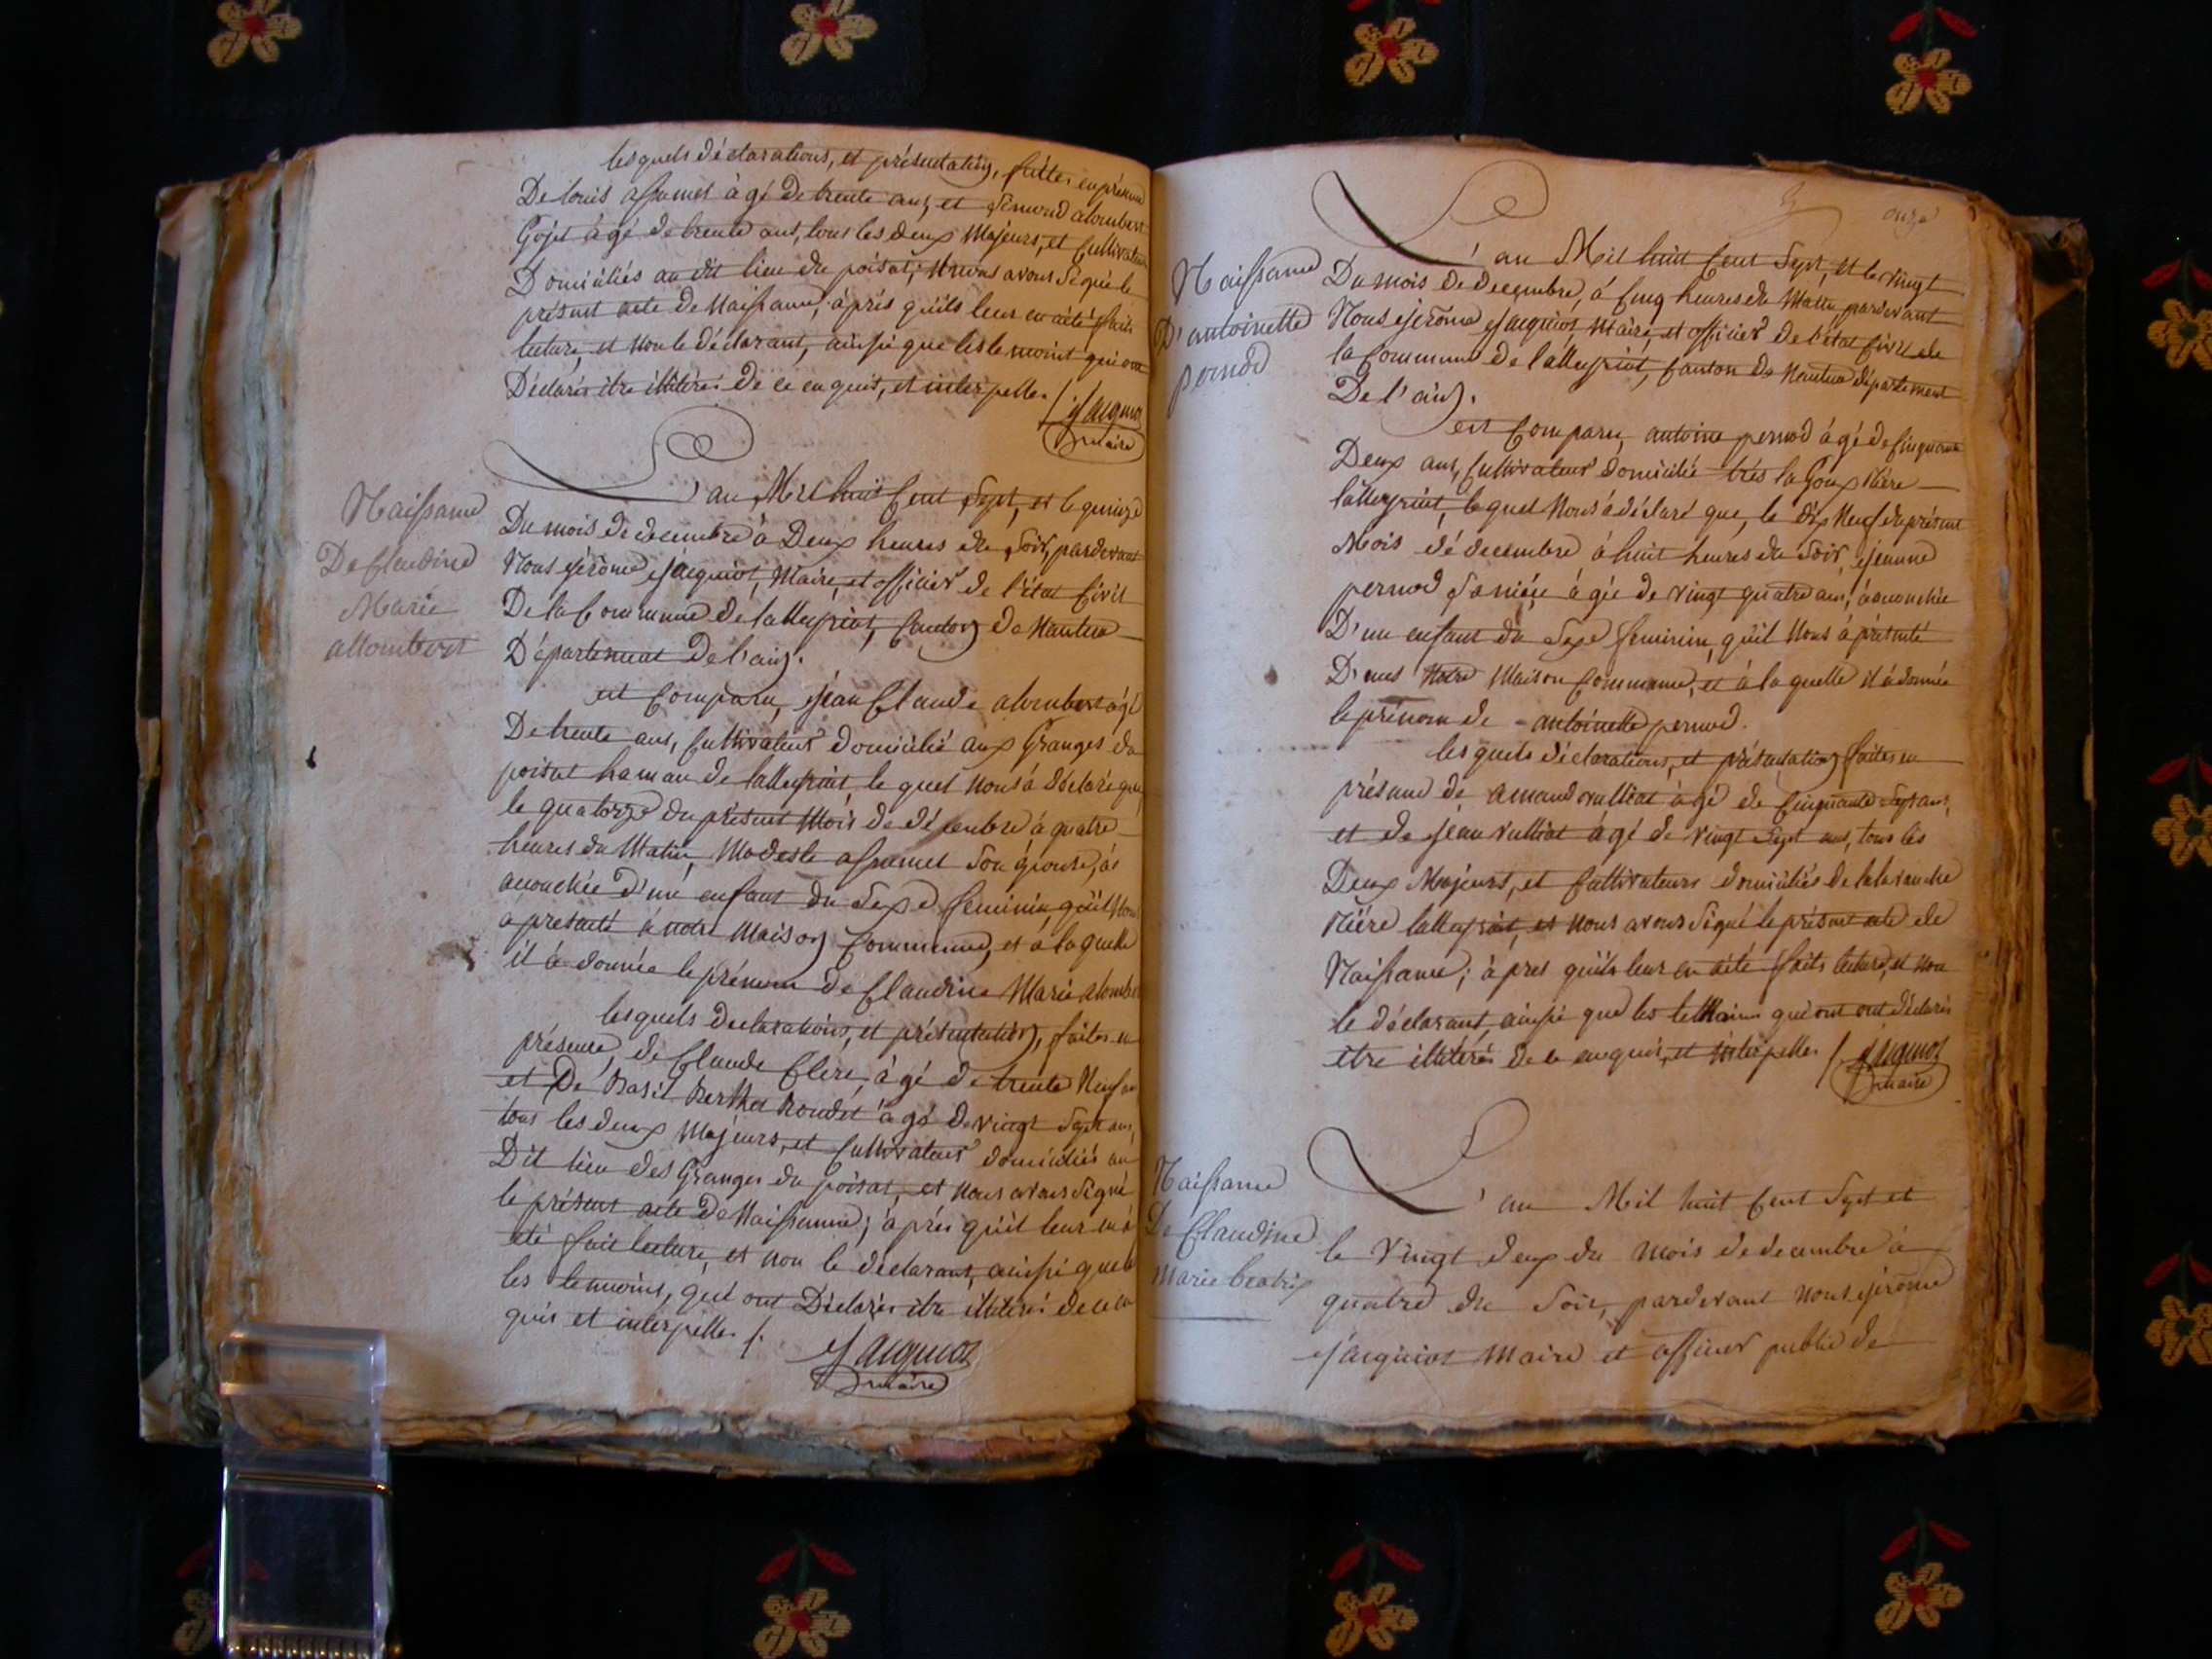 lesquels déclarations, et présentation, faittes en présence
De louis assumel âgé de trente ans, et alombert
Gojet âgé de trente ans, tous les deux Majeurs, et Cultivateurs
Domiciliés au dit lieu du poisat; avons signé le
présent acte de Naissance; après quils leur en a été fait
lecture, et non le déclarant, ainsi que les temoint qui ont
Déclarés être illitérés de ce enquis, et interpellés. / Jacquiot
maire
Naissance
De Claudine
Marie
allombert
L'an Mil huit Cent Sept, et le quinze
Du mois de decembre à Deux heures du Soir, pardevant
Nous jérôme jacquiot, Maire, et officier de l'état Civil
De la Commune de lalleyriat, Canton de Nantua
Département de l'ain.
est Comparu, jean Claude alombert âgé
De trente ans, Cultivateur domicilié aux Granges du
poisat hamau de lalleyriat le quel nous à déclaré que
le quatorze du présent Mois de décembre à quatre
heures du Matin, Modeste assumel Son épouse, à
accouchée d'un enfant du Sexe feminin quil Nous
a présenté à notre Maison Commune, et à la quelle
il à donnée le prénom de Claudine Marie alombert
lesquels declarations, et présentation, faites en
présence, de Claude Clerc, âgé de trente Neuf ans
et De Basil Berthet Rondet âgé de vingt Sept ans,
tous les deux Majeurs, et Cultivateur domiciliés au
Dit lieu des Granges du poisat, et nous avons Signé
le présent acte De Naissance; après quil leur en à
été fait lecture, et non le déclarant, ainsi que
les temoins, qui ont Déclarés être illitérés de ce en
quis et interpellés /.
Jacquiot
maire
onze
Naissance
D'antoinette
pernod
L'an Mil huit Cent Sept, et le vingt
Du mois de decembre, à Cinq heures du Matin, pardevant
Nous jérôme jacquiot, Maire, et officier de l'état Civil de
la Commune de lalleyriat, Canton de Nantua département
De l'ain.
est Comparu, antoine pernod âgé de Cinquante
Deux ans, Cultivateur domicilié
lalleyriat, le quel Nous à déclaré que, le dix Neuf du présent
Mois dé decembre à huit heures du Soir, jeanne
pernod âgée de vingt quatre ans, à accouchée
D'un enfant du Sexe feminin, quil Nous à présenté
D'ans Notre Maison Commune, et à la quelle il à donnée
le prénom de - antoinette pernod.
lesquels déclarations, et présentation faites en
présence de amand vulliat âgé de Cinquante Sept ans,
et de jean vulliat âgé de vingt Sept ans, tous les
Deux Majeurs, et Cultivateurs domiciliés
lalleyriat, et nous avons Signé le présent acte de
Naissance; à pres quils leur en à été faits lecture, et non
le déclarant, ainsi que les temoins qui ont déclarés
être illitérés de ce enquis, et interpellés / Jacquiot
maire
Naissance
De Claudine
Marie beatrix
L'an Mil huit Cent Sept et
le vingt deux du mois de decembre à
quatre du Soir, pardevant nous jérôme
jacquiot Maire et officier public de